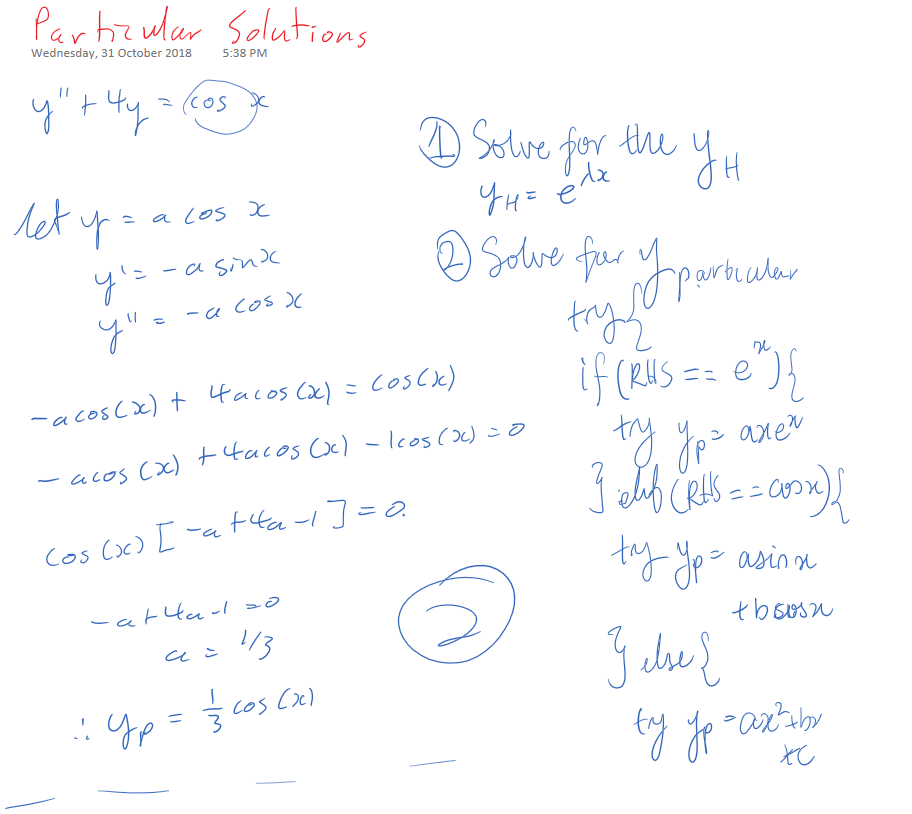 Particular Solutions
Wednesday, 31 October 2018 5:38 PM
y'' + 4y = cos x
let y = a cos x
y' = -a sinx
y'' = -a cos x
-acos(x) + 4acos(x) = cos(x)
-acos(x) + 4acos(x) - 1cos(x) = 0
cos(x) [-a+4a-1] = 0.
-a+4a-1 = 0
a = 1/3
∴ yp = 1/3 cos(x)
① Solve for the yH
yH = e^λx
② Solve for y particular
try {
if (RHS == e^x) {
try yp = axe^x
} elif (RHS == cosx) {
try yp = asinx
+bcosx
} else {
try yp = ax²+bx
+c
2